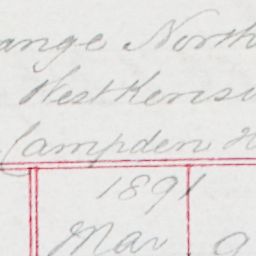 ange North
West Kensi
Campden H
1891
Mar 9